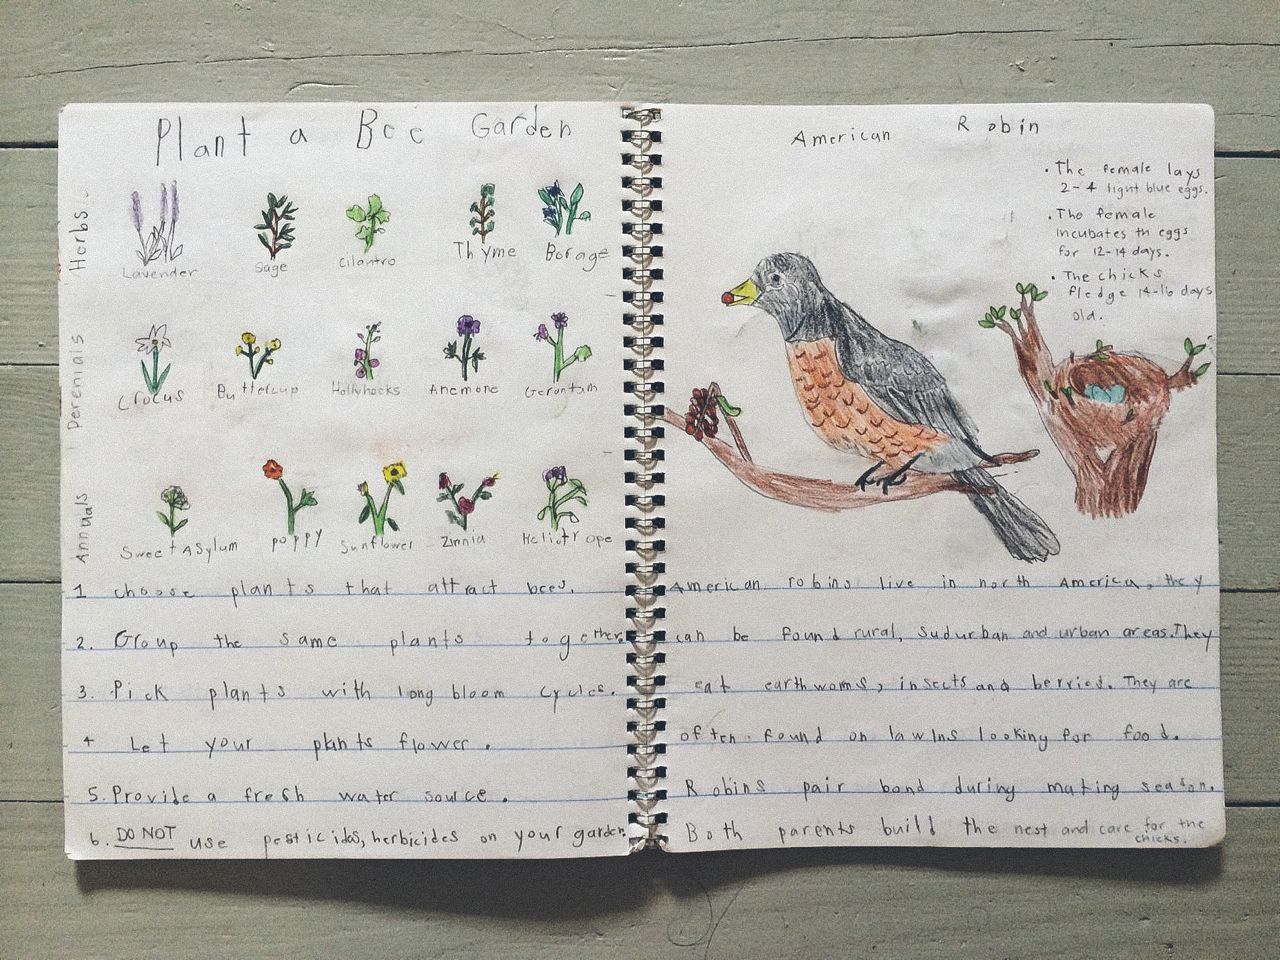 Plant a Bee Garden
Herbs
Lavender Sage Cilantro Thyme Borage
Perenials
Crocus Buttercup Hollyhocks Anemone Gerantum
Annuals
Sweet Asylum poppy Sunflower Zinnia Heliotrope
1 choose plants that attract bees.
2. Group the same plants together.
3. Pick plants with long bloom cycles.
4 Let your plants flower.
5. Provide a fresh water source.
6. DO NOT use pesticides, herbicides on your garden.
American Robin
• The female lays
2-4 light blue eggs.
• The female
incubates th eggs
for 12-14 days.
• The chicks
fledge 14-16 days
old.
American robins live in north America, they
can be found rural, sudurban and urban areas. They
eat earthworms, insects and berries. They are
often found on lawns looking for food.
Robins pair bond during mating season.
Both parents build the nest and care for the
chicks.